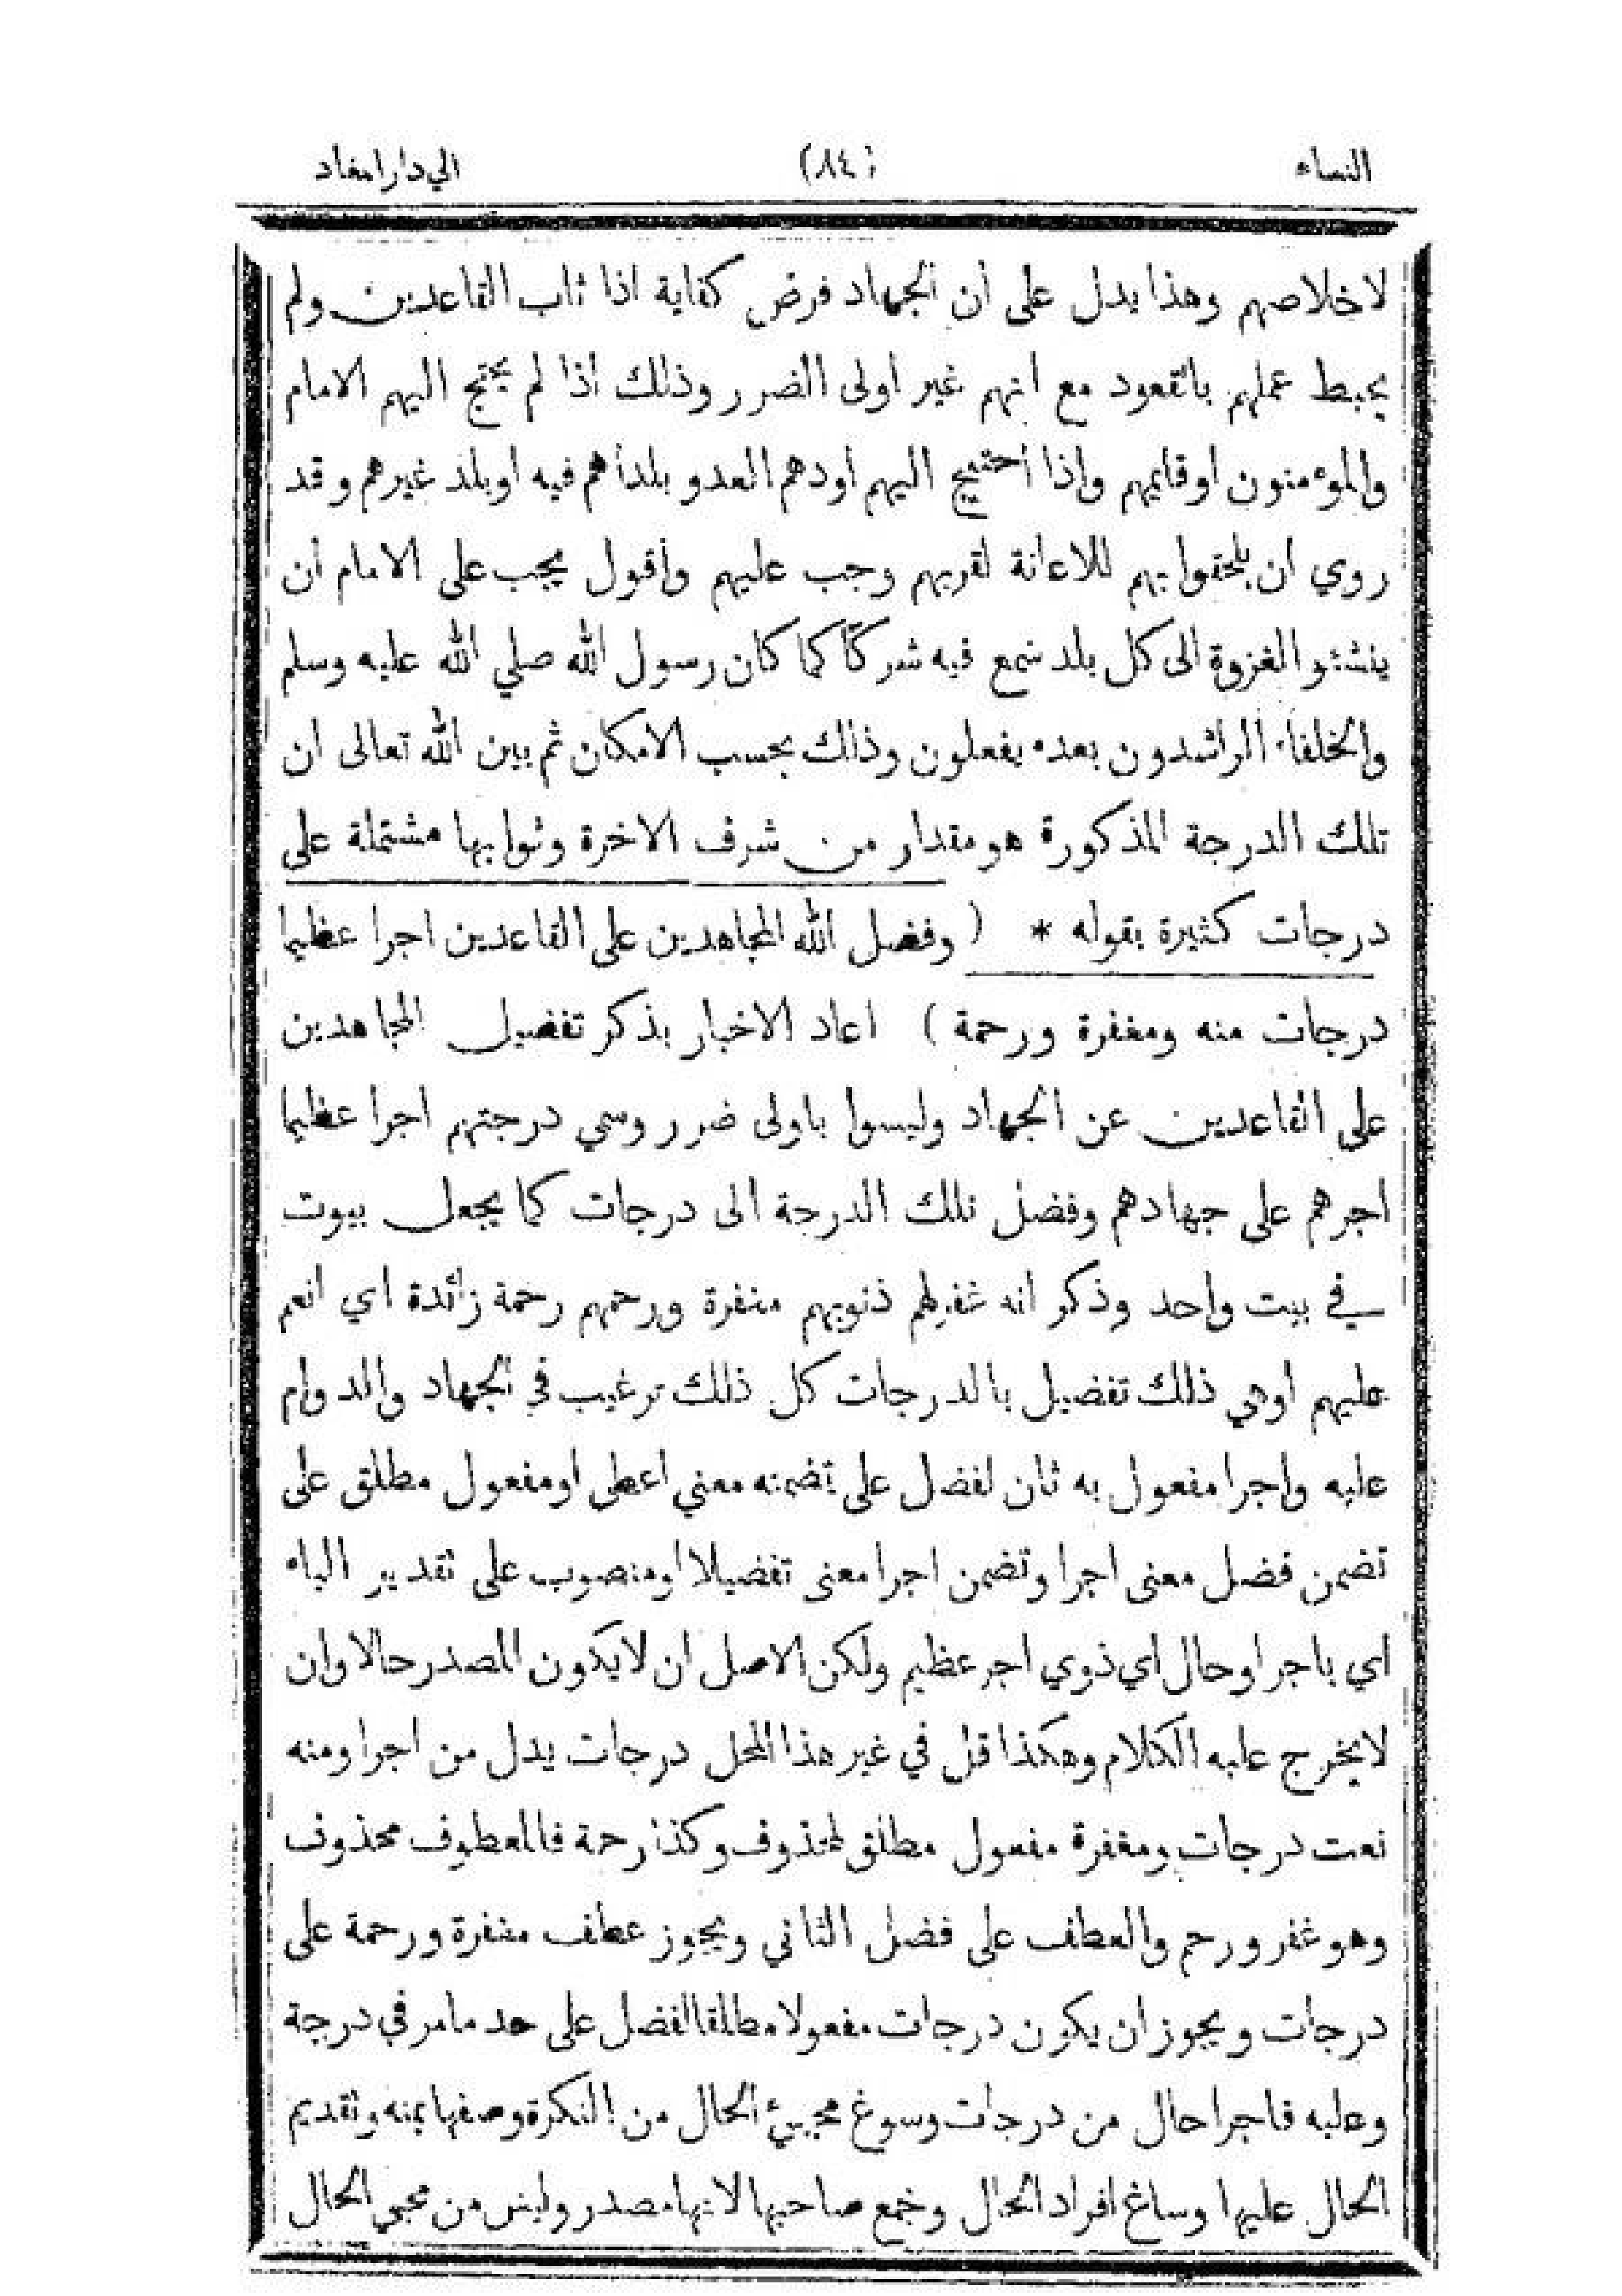 النساء (٨٤) الي دار امغاد
لاخلاصهم وهذا يدل على أن الجهاد فرض كفاية اذا ثاب القاعدين ولم
يحبط عملهم بالقعود مع انهم غير اولى الضرر وذلك اذا لم يحتج اليهم الامام
والموءمنون اوقايمهم واذا احتيج اليهم اودهم العدو بلدا هم فيه اوبلد غيرهم وقد
روي ان يلحقوا بهم للاعانة لقربهم وجب عليهم وأقول يجب على الامام أن
ينشئو الغزوة الى كل بلد سمع فيه شركًا كما كان رسول الله صلي الله عليه وسلم
والخلفاء الراشدون بعده يفعلون وذلك بحسب الامكان ثم بين الله تعالى ان
تلك الدرجة المذكورة هو مقدار من شرف الاخرة وثوابها مشتملة على
درجات كثيرة بقوله * ( وفضل الله المجاهدين على القاعدين اجرا عظيما
درجات منه ومغفرة ورحمة ) اعاد الاخبار بذكر تفضيل المجاهدين
على القاعدين عن الجهاد وليسوا باولى ضرر وسمي درجتهم اجرا عظيما
اجرهم على جهادهم وفضل تلك الدرجة الى درجات كما يجعل بيوت
في بيت واحد وذكر انه غفر لهم ذنوبهم مغفرة ورحمهم رحمة زائدة اي انعم
عليهم اوهي ذلك تفضيل بالدرجات كل ذلك ترغيب في الجهاد والدوام
عليه واجرا مفعول به ثان لفضل على تضمنه معني اعطى اومفعول مطلق على
تضمن فضل معنى اجرا وتضمن اجرا معنى تفضيلا اومنصوب على تقدير الباء
اي باجر اوحال اي ذوي اجر عظيم ولكن الاصل ان لايكون المصدر حالا وان
لايخرج عليه الكلام وهكذا قل في غير هذا المحل درجات يدل من اجرا ومنه
نعت درجات ومغفرة مفعول مطلق لمحذوف وكذا رحمة فالمعطوف محذوف
وهو غفر ورحم والعطف على فضل الثاني ويجوز عطف مغفرة ورحمة على
درجات ويجوز ان يكون درجات مفعولا مطلقا لفضل على حد مامر في درجة
وعليه فاجرا حال من درجات وسوغ مجيئ الحال من النكرة وصفها بمنه وتقديم
الحال عليها وساغ افراد الحال وجمع صاحبها لانها مصدر وليس من مجي الحال